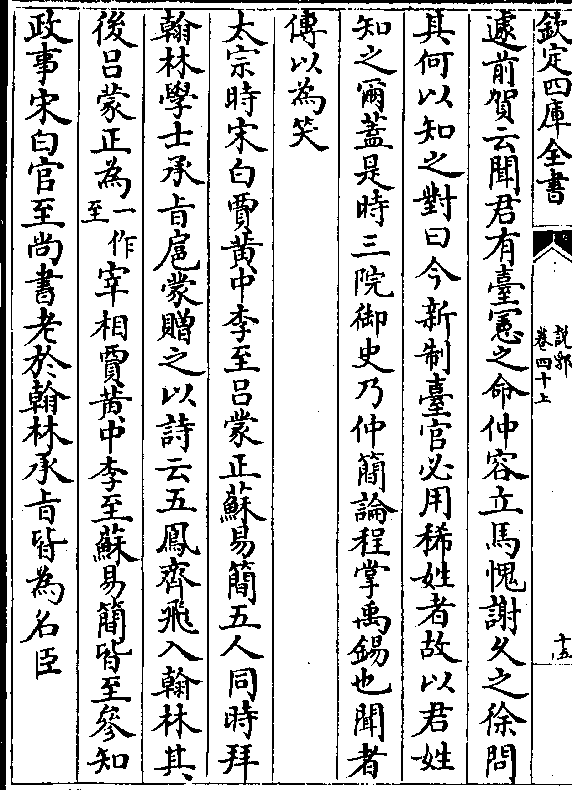 欽定四庫全書
說郛
卷四十上
十五
遽前賀云聞君有臺憲之命仲容立馬愧謝久之徐問
其何以知之對曰今新制臺官必用稀姓者故以君姓
知之爾蓋是時三院御史乃仲簡論程掌禹錫也聞者
傳以為笑
太宗時宋白賈黄中李至吕蒙正蘇易簡五人同時拜
翰林學士承旨扈蒙贈之以詩云五鳳齊飛入翰林其
後吕蒙正為一作至宰相賈黄中李至蘇易簡皆至參知
政事宋白官至尚書老於翰林承旨皆為名臣